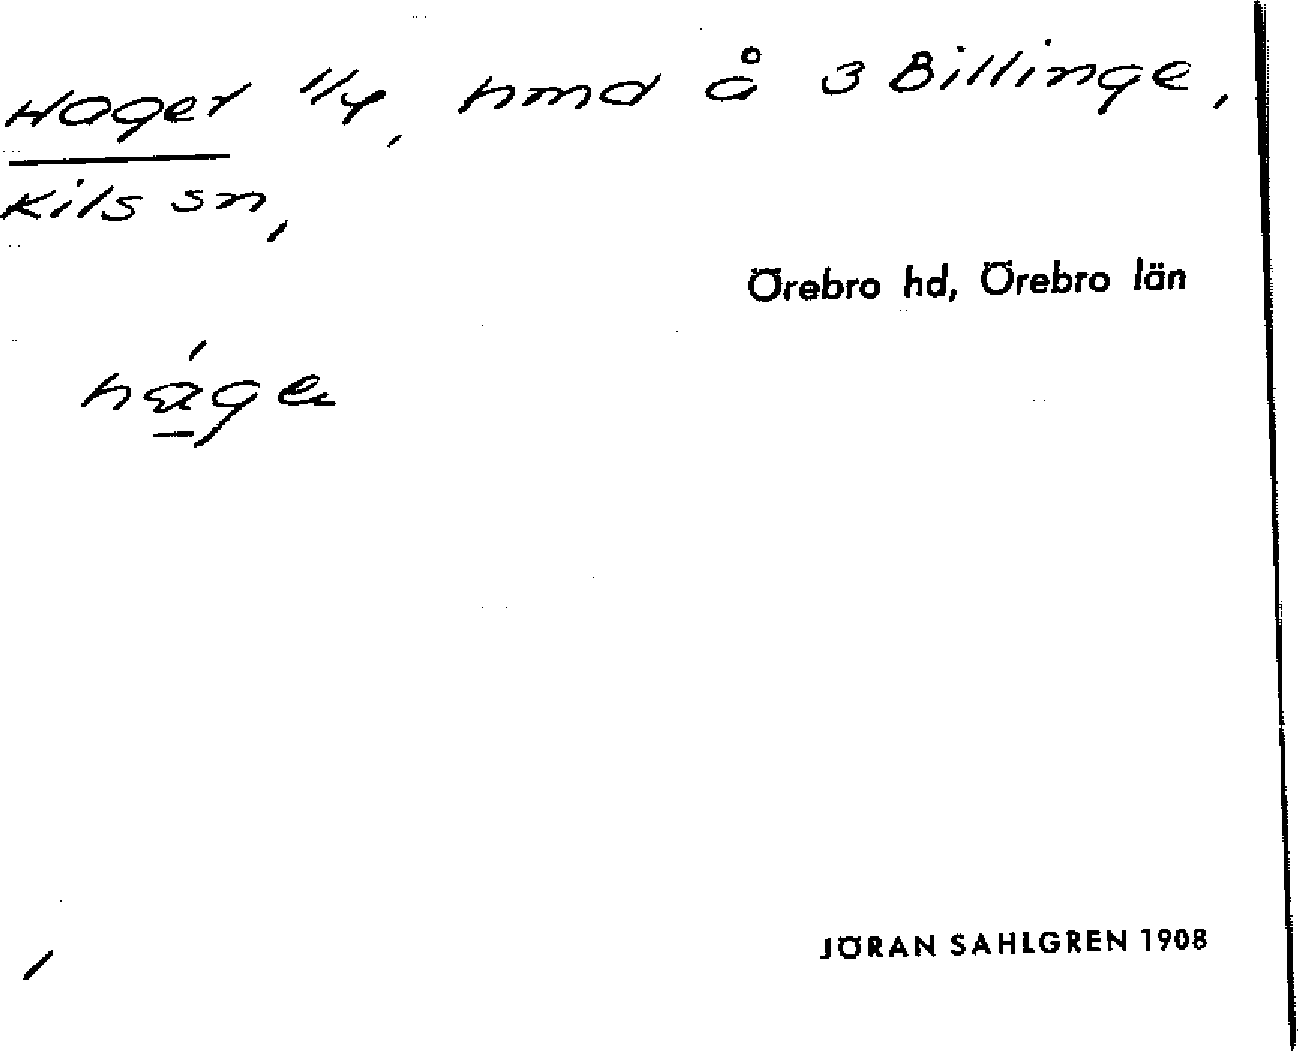 Hager 1/4, hmd å 3 Billinge,
Kils sn,
Örebro hd, Örebro län
há̱ge
JÖRAN SAHLGREN 1908